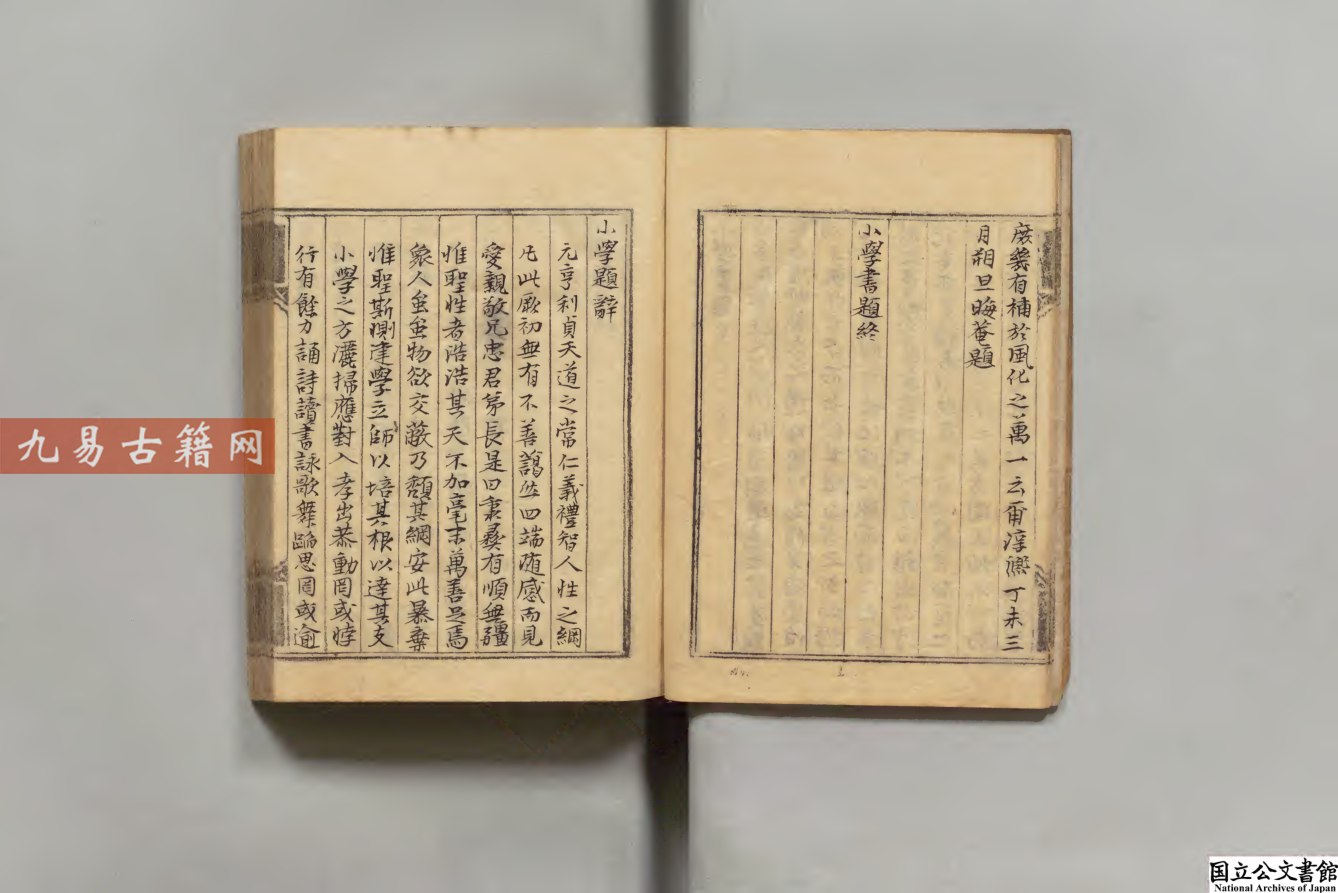 庻幾有補於風化之萬一云甭淳熈丁未三
月朔旦晦菴題
小學書題終
小學題辭
元亨利貞天道之常仁義禮智人性之綱
凡此厥初無有不善藹然四端随感而見
愛親敬兄忠君弟長是曰秉彛有順無疆
惟聖性者浩浩其天不加毫末萬善足焉
衆人蚩蚩物欲交蔽乃頽其綱安此暴棄
惟聖斯惻建學立師以培其根以達其支
小學之方灑掃應對入孝出恭動罔或悖
行有餘力誦詩讀書詠歌舞蹈思罔或逾
九易古籍网
国立公文書館
National Archives of Japan